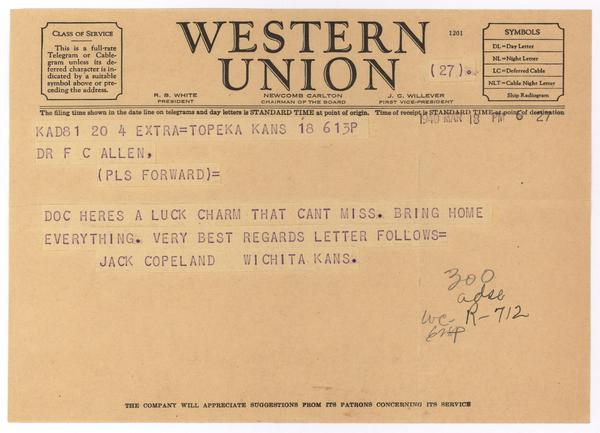 CLASS OF SERVICE
This is a full-rate
Telegram or Cable-
gram unless its de-
ferred character is in-
dicated by a suitable
symbol above or pre-
ceding the address.
WESTERN
UNION
1201
(27).
R. B. WHITE
PRESIDENT
NEWCOMB CARLTON
CHAIRMAN OF THE BOARD
J. C. WILLEVER
FIRST VICE-PRESIDENT
SYMBOLS
DL=Day Letter
NL=Night Letter
LC=Deferred Cable
NLT=Cable Night Letter
Ship Radiogram
The filing time shown in the date line on telegrams and day letters is STANDARD TIME at point of origin. Time of receipt is STANDARD TIME at point of destination
1940 MAR 18 PM 6 27
KAD81 20 4 EXTRA=TOPEKA KANS 18 613P
DR F C ALLEN,
(PLS FORWARD)=
DOC HERES A LUCK CHARM THAT CANT MISS. BRING HOME
EVERYTHING. VERY BEST REGARDS LETTER FOLLOWS=
JACK COPELAND WICHITA KANS.
300
adse
wc R-712
THE COMPANY WILL APPRECIATE SUGGESTIONS FROM ITS PATRONS CONCERNING ITS SERVICE